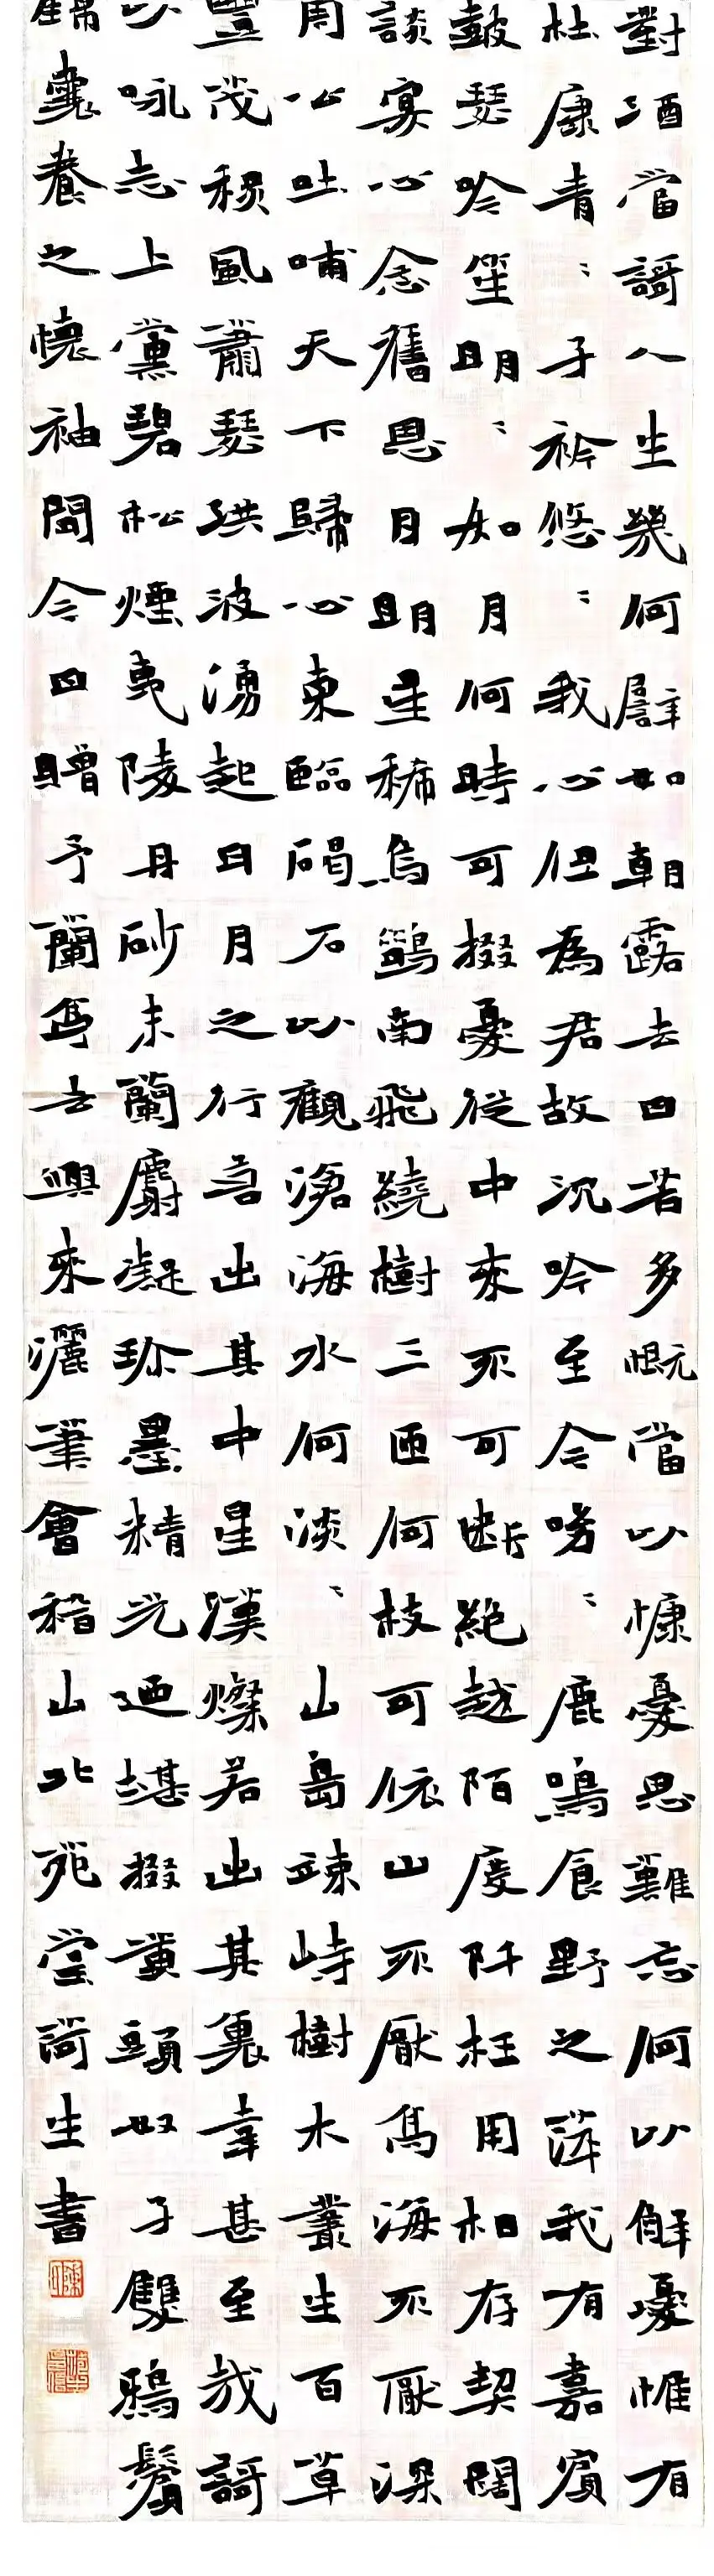 對酒當謌人生幾何譬如朝露去日苦多慨當以慷憂思難忘何以解憂惟有
杜康青〻子衿悠〻我心但為君故沉吟至今呦〻鹿鳴食野之蓱我有嘉賓
鼓瑟吹笙明〻如月何時可掇憂從中來不可斷絕越陌度阡枉用相存契闊
談宴心念舊恩月明星稀烏鵲南飛繞樹三匝何枝可依山不厭高海不厭深
周公吐哺天下歸心東臨碣石以觀滄海水何淡〻山島竦峙樹木叢生百草
豐茂秋風蕭瑟洪波湧起日月之行若出其中星漢燦若出其裏幸甚至哉謌
以咏志上黨碧松煙夷陵丹砂末蘭麝凝珍墨精光迺堪掇黃頭奴子雙鴉鬟
錦囊養之懷袖間今日贈予蘭亭去興來灑筆會稽山北苑堂荷生書